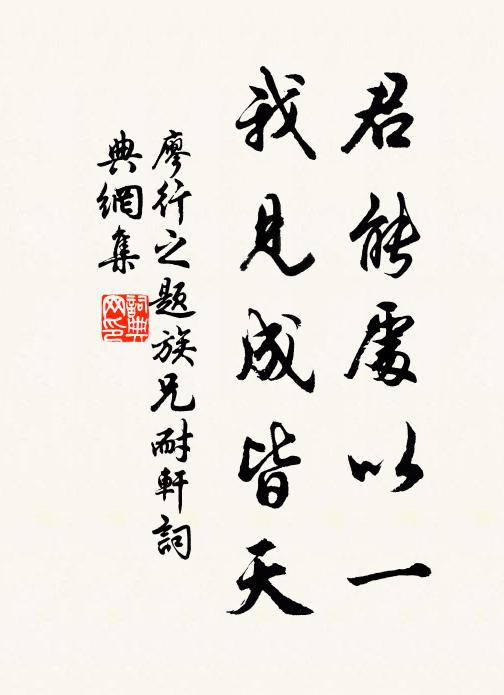 君能處以一
我見成皆天
廖行之題族兄耐軒詞
典網集
詞典
网印